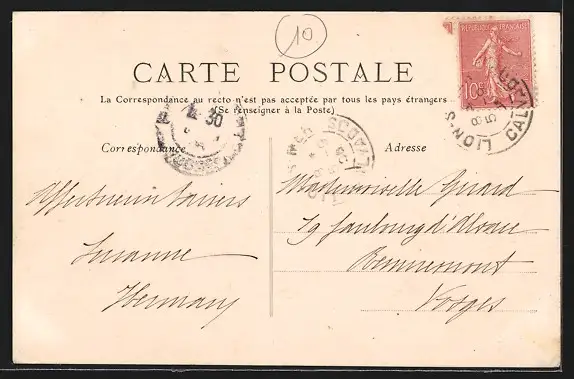 10
CARTE POSTALE
La Correspondance au recto n'est pas acceptée par tous les pays étrangers
(Se renseigner à la Poste)
REPUBLIQUE FRANÇAISE
10
LION-S
CALVADOS
30
VOSGES
CALVADOS
Correspondance
Adresse
Affectueux baisers
Suzanne
Hermany
Mademoiselle Girard
39 faubourg d'Alsace
Remiremont
Vosges